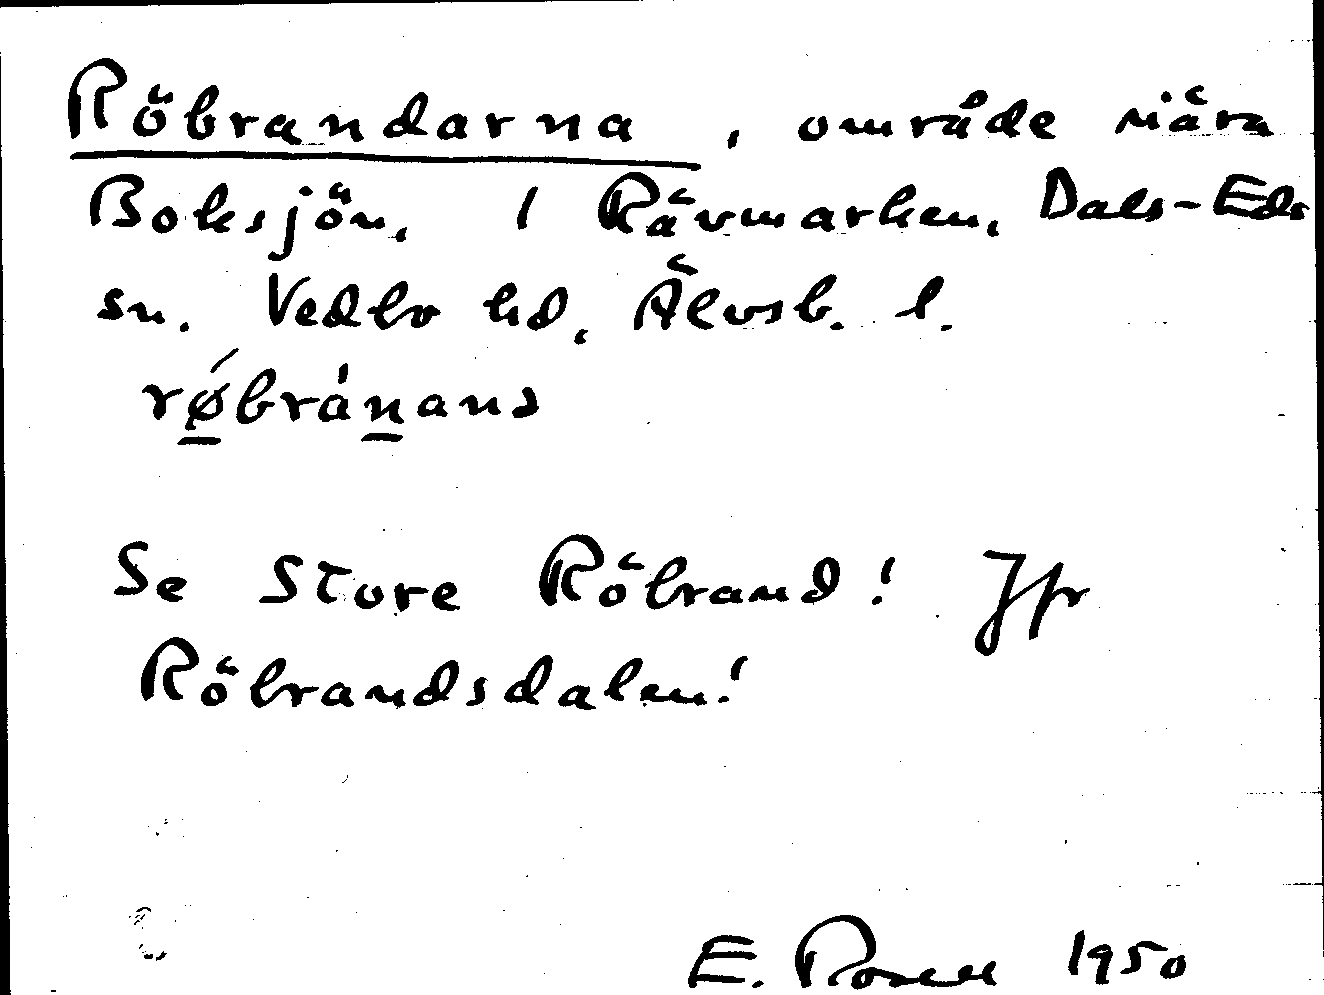 Röbrandarna, område nära
Boksjön, i Rävmarken, Dals-Eds
sn. Vedbo hd, Älvsb. l.
rǿbránans
Se Store Röbrand! Jfr
Röbrandsdalen!
E. Rosell 1950